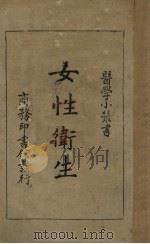 醫學小叢書
女性衛生
商務印書館發行
www.duxiu.com